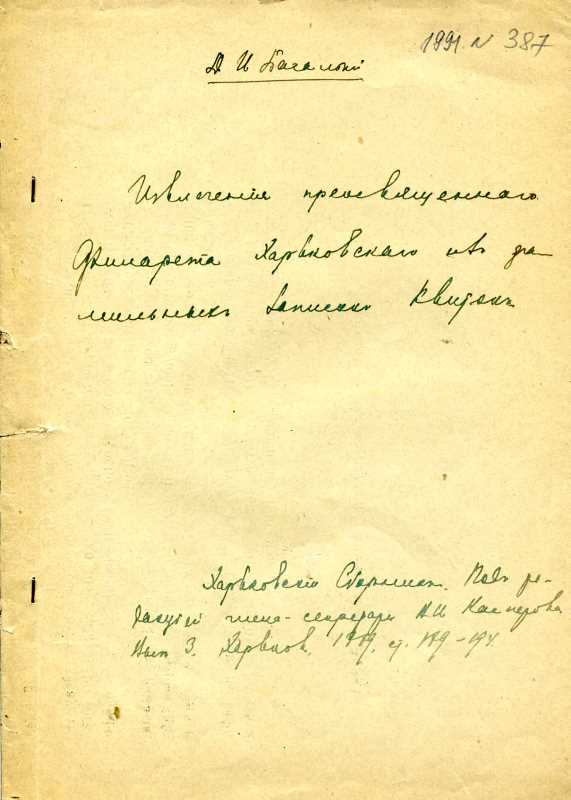 1991 N 387
Д И Багалѣй
Извлеченія преосвященнаго
Филарета Харьковскаго изъ фа-
мильныхъ записокъ Квитокъ
Харьковскій Сборникъ. Подъ ре-
дакціей члена-секретаря В.И. Касперова
Вып 3. Харьков, ст. 179-194.